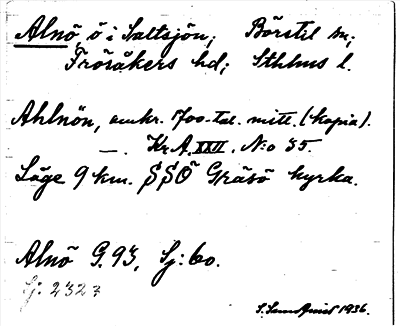 Alnö ö i Saltsjön; Börstil sn;
Frösåkers hd; Sthlms l.
Ahlnön, omkr. 1700-tal. mitt. (kopia).
—. Kr.A. XXII. No 35.
Läge 9 km. SSO Gräsö kyrka.
Alnö G. 93, Sj: 60.
Sj: 2327
S. Landqvist 1936.